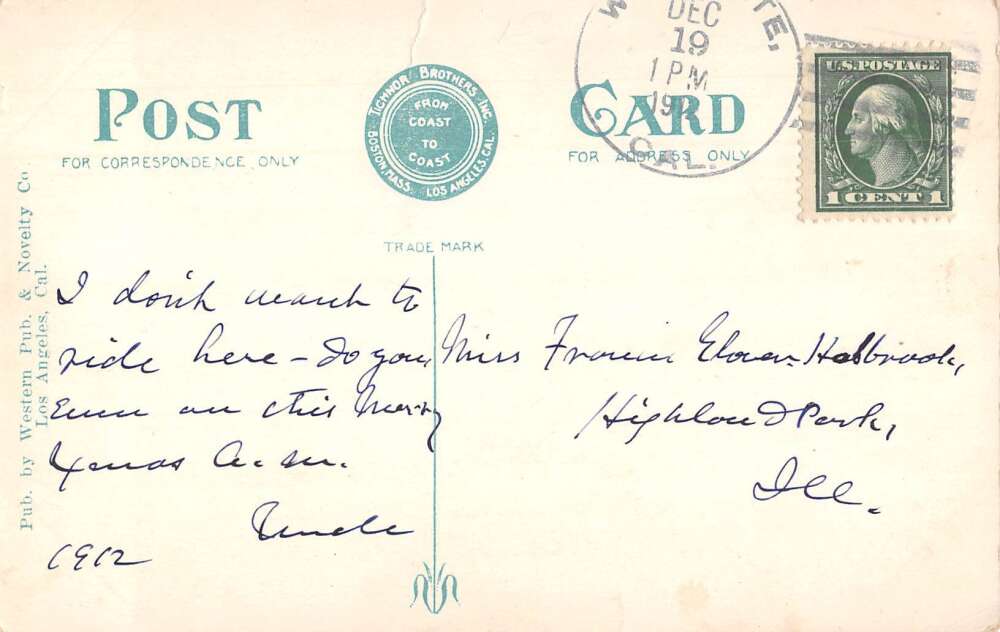 DEC
19
1 PM
19
CAL.
U.S. POSTAGE
1 CENT 1
POST CARD
TICHNOR BROTHERS. INC.
BOSTON, MASS. LOS ANGELES, CAL.
FROM
COAST
TO
COAST
FOR CORRESPONDENCE ONLY
FOR ADDRESS ONLY
TRADE MARK
Pub. by Western Pub. & Novelty Co
Los Angeles, Cal.
I don't want to
ride here - do you
Even on this Merry
Xmas A.M.
Uncle
1912
Miss Holbrook,
Highland Park,
Ill.